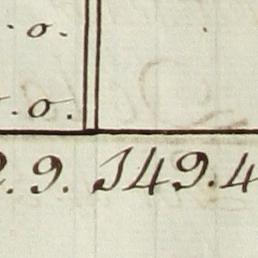 . o.
. o.
2. 9. 349. 4